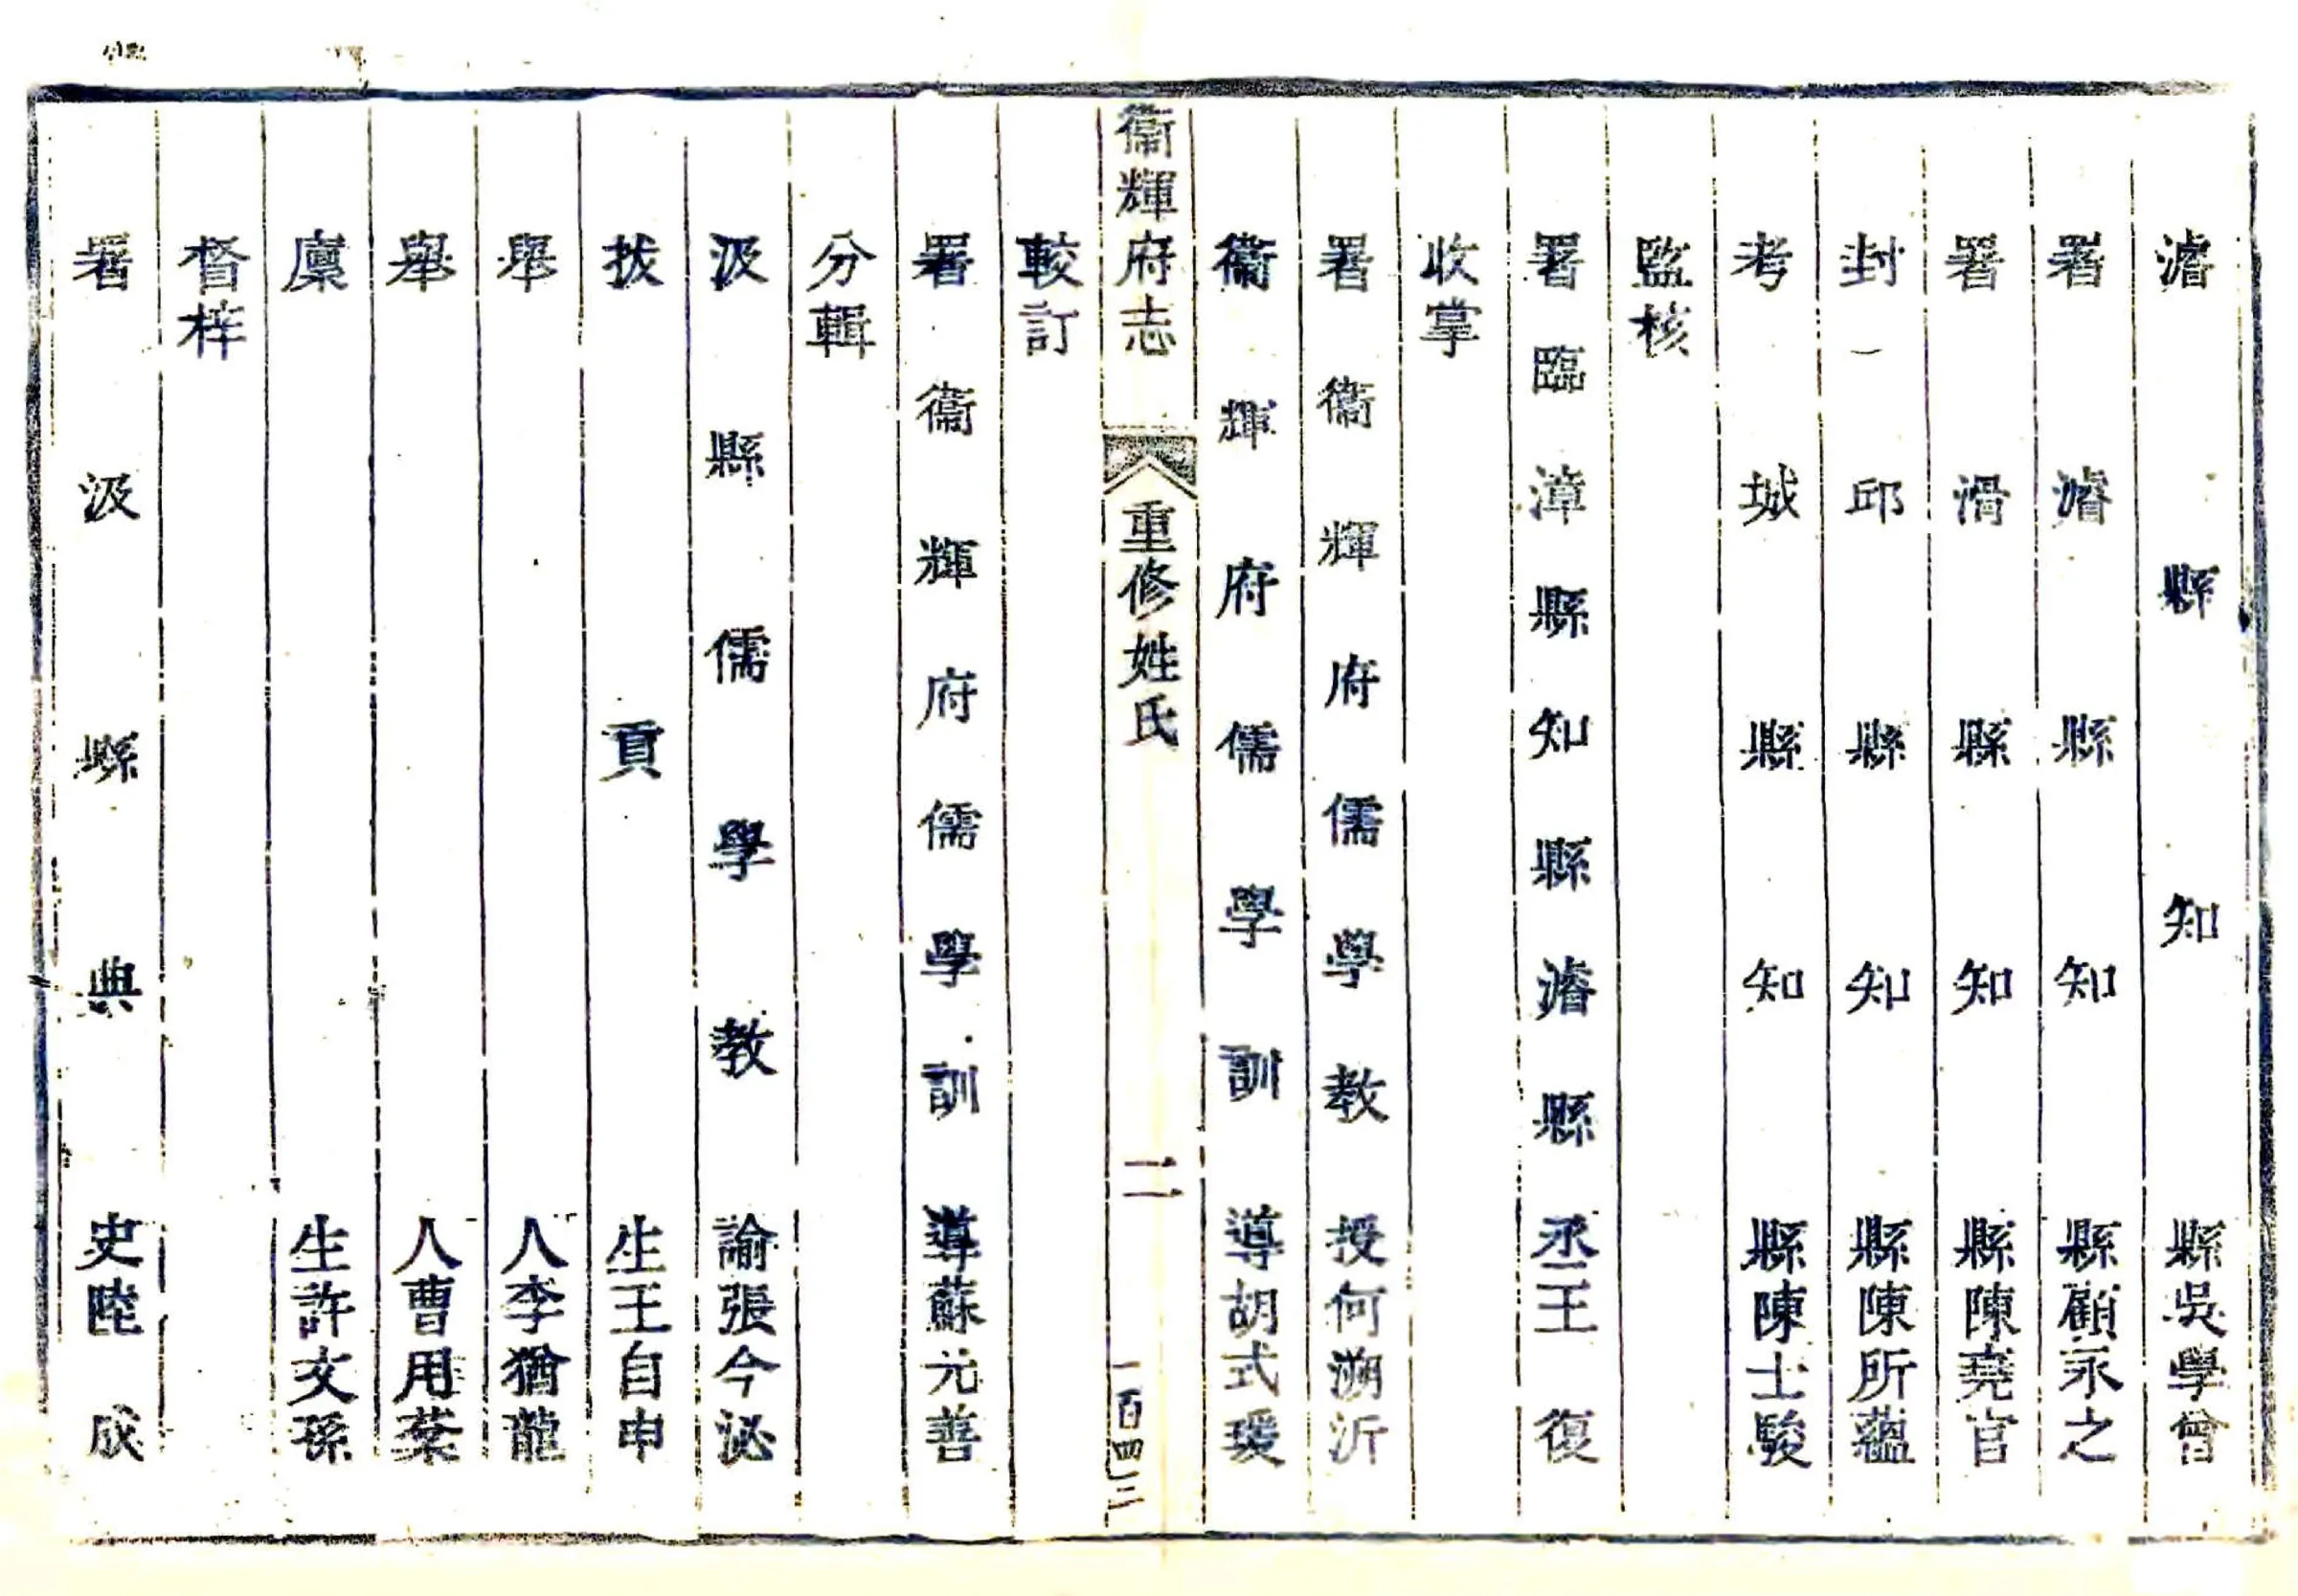 濬縣知縣吳學曾
署濬縣知縣顧永之
署滑縣知縣陳堯官
封邱縣知縣陳所蘊
考城縣知縣陳士駿
監核
署臨漳縣知縣濬縣丞王復
收掌
署衞輝府儒學教授何溯沂
衞輝府儒學訓導胡式瑗
衞輝府志
重修姓氏
二
一百四三
較訂
署衞輝府儒學訓導蘇元善
分輯
汲縣儒學教諭張今泌
拔貢生王自申
舉人李猶龍
舉人曹用葉
廩生許文孫
督梓
署汲縣典史陸成